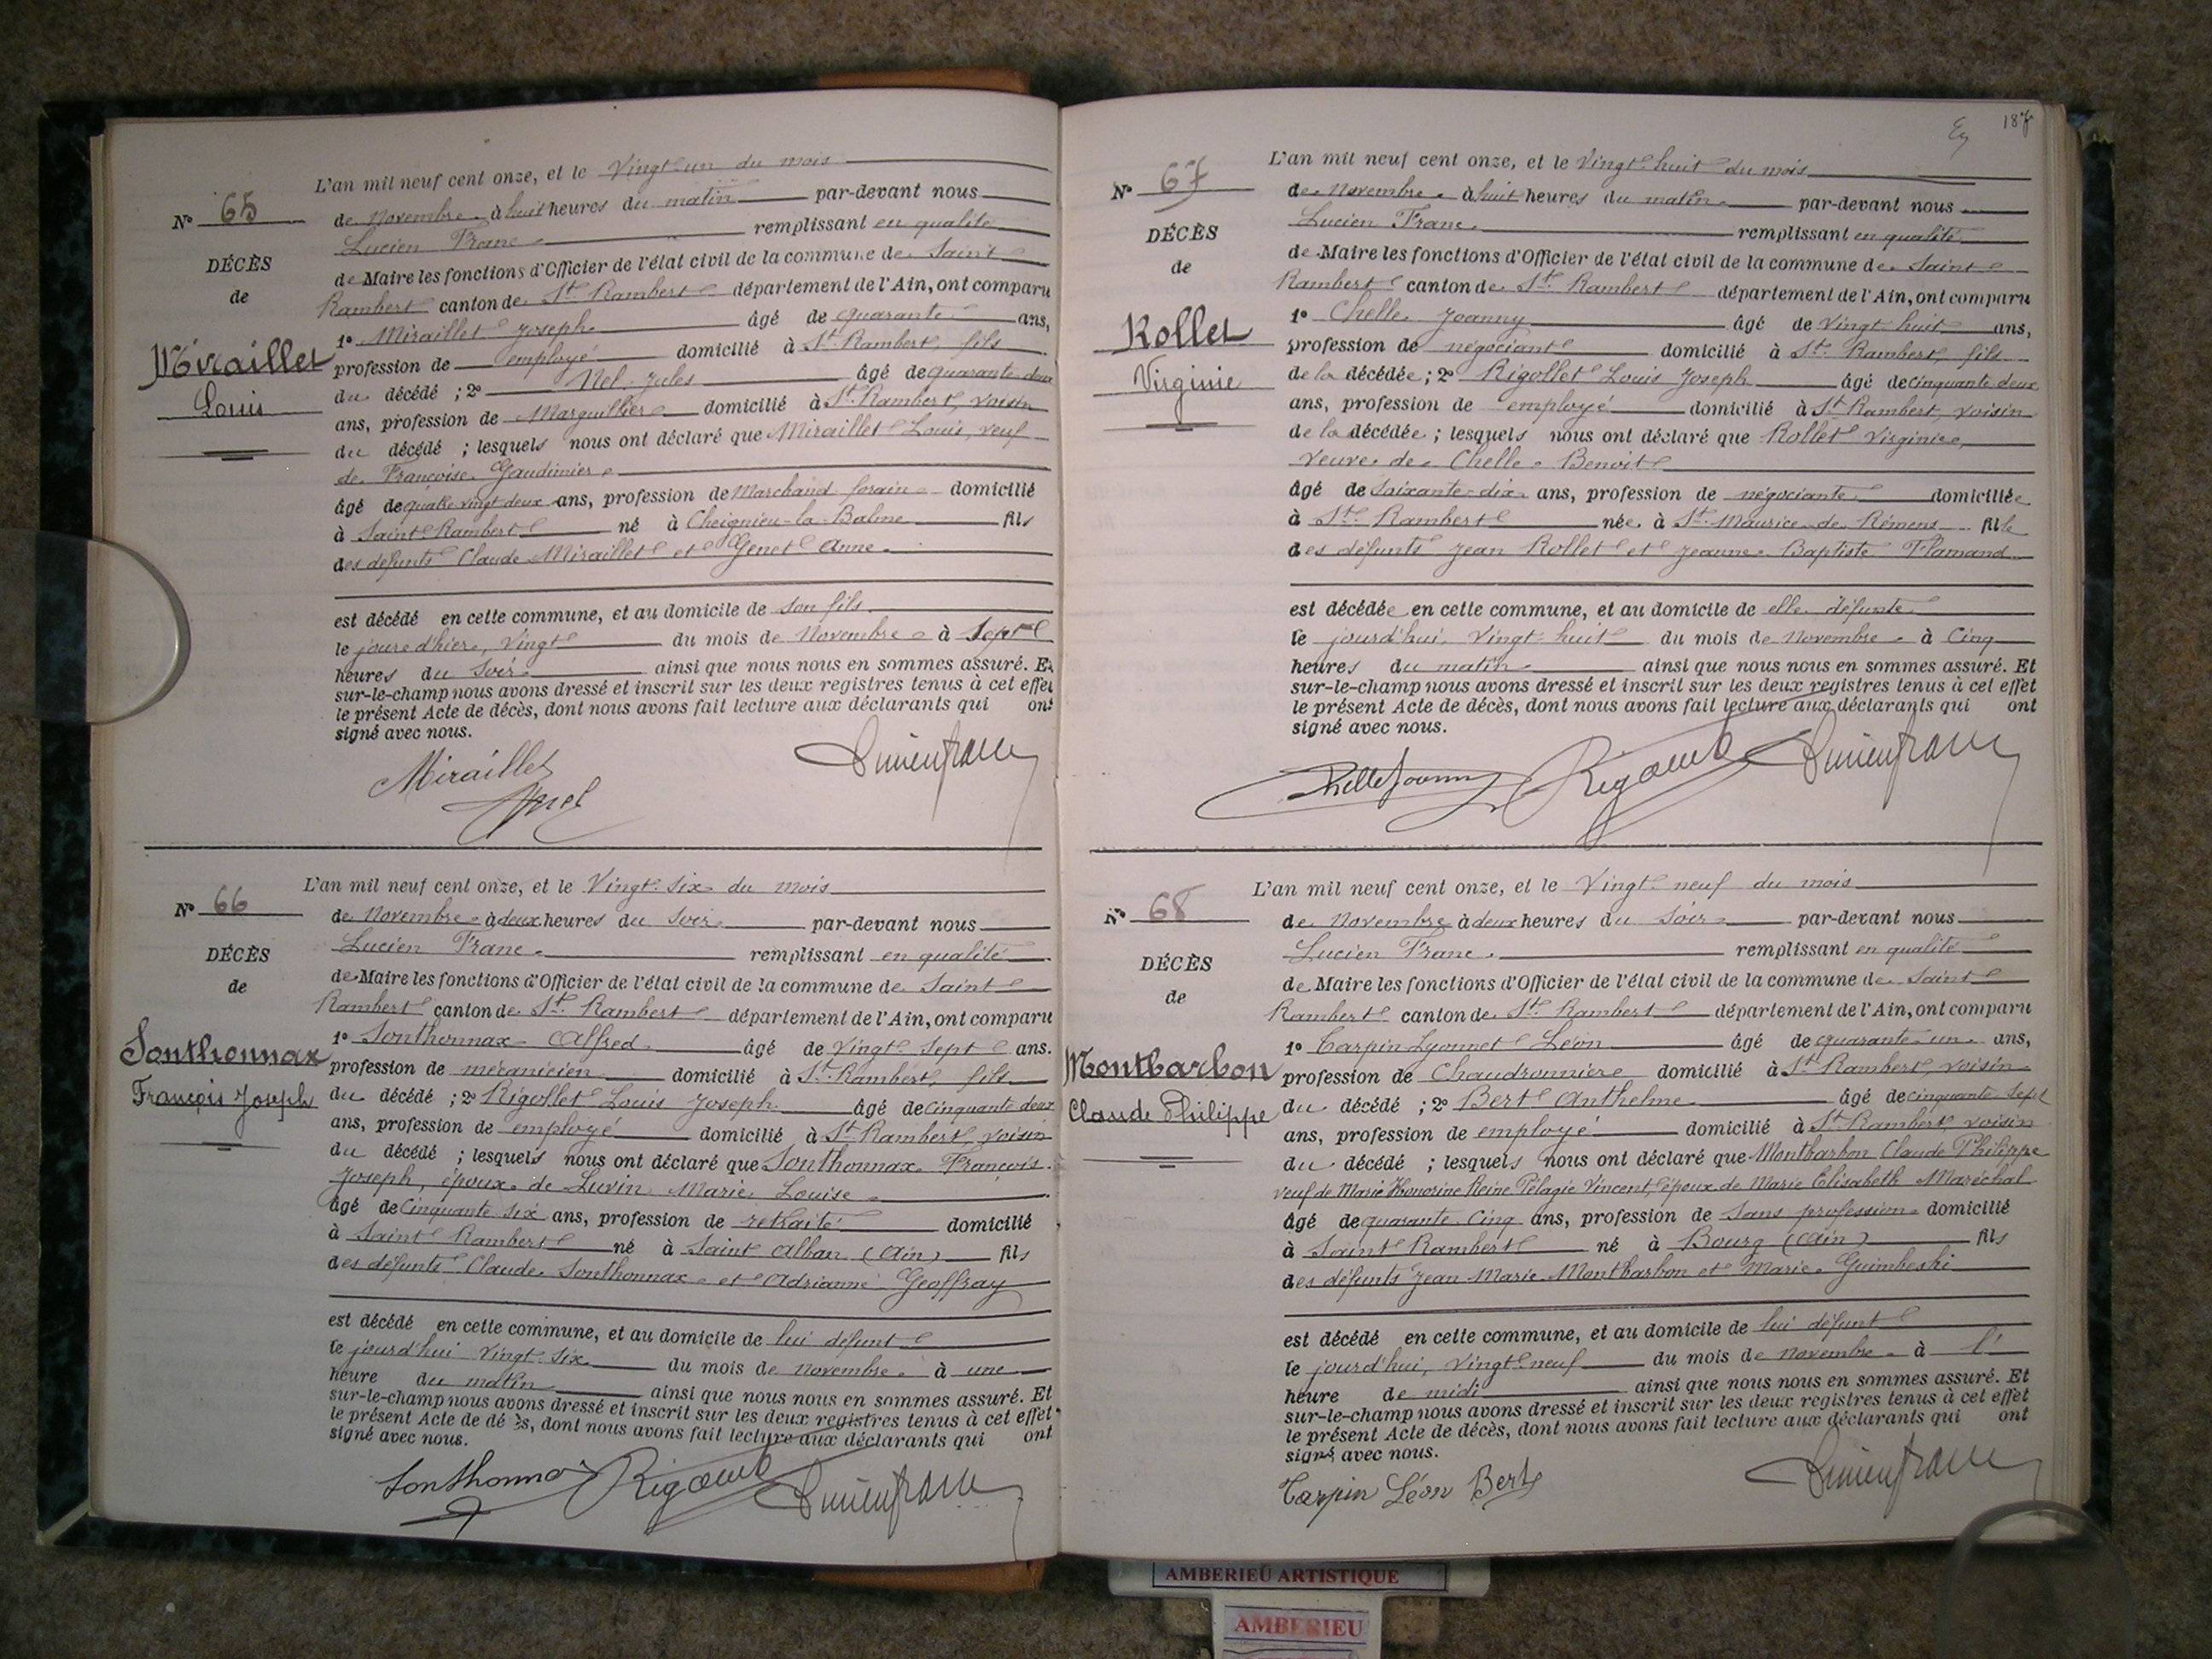 N° 65
DÉCÈS
de
Miraillet
Louis
L'an mil neuf cent onze, et le Vingt un du mois
de Novembre à huit heures du matin par-devant nous
Lucien Franc remplissant en qualité
de Maire les fonctions d'Officier de l'état civil de la commune de Saint
Rambert canton de St Rambert département de l'Ain, ont comparu
1° Miraillet Joseph âgé de quarante ans,
profession de employé domicilié à St Rambert, fils
du décédé ; 2° Nel Jules âgé de quarante deux
ans, profession de Marguillier domicilié à St Rambert, voisin
du décédé ; lesquels nous ont déclaré que Miraillet Louis, veuf
de Françoise Gaudinier
âgé de quatre vingt deux ans, profession de Marchand forain domicilié
à Saint Rambert né à Cheignieu-la-Balme fils
des défunts Claude Miraillet et Genet Anne
est décédé en cette commune, et au domicile de son fils
le jour d'hier, Vingt du mois de Novembre à Sept
heures du Soir ainsi que nous nous en sommes assuré. Et
sur-le-champ nous avons dressé et inscrit sur les deux registres tenus à cet effet
le présent Acte de décès, dont nous avons fait lecture aux déclarants qui ont
signé avec nous.
Miraillet Lucien Franc
Nel
N° 66
DÉCÈS
de
Sonthonnax
François Joseph
L'an mil neuf cent onze, et le Vingt-six du mois
de Novembre à deux heures du Soir par-devant nous
Lucien Franc remplissant en qualité
de Maire les fonctions d'Officier de l'état civil de la commune de Saint
Rambert canton de St Rambert département de l'Ain, ont comparu
1° Sonthonnax Alfred âgé de Vingt Sept ans.
profession de mécanicien domicilié à St Rambert, fils
du décédé ; 2° Rigollet Louis Joseph âgé de cinquante deux
ans, profession de employé domicilié à St Rambert, voisin
du décédé ; lesquels nous ont déclaré que Sonthonnax François
Joseph, époux de Luvin Marie Louise
âgé de Cinquante six ans, profession de retraité domicilié
à Saint Rambert né à Saint Alban (Ain) fils
des défunts Claude Sonthonnax et Adrianne Geoffray
est décédé en cette commune, et au domicile de lui défunt
le jourd'hui Vingt-six du mois de novembre à une
heure du matin ainsi que nous nous en sommes assuré. Et
sur-le-champ nous avons dressé et inscrit sur les deux registres tenus à cet effet
le présent Acte de dé ès, dont nous avons fait lecture aux déclarants qui ont
signé avec nous.
Sonthonnax Rigollet Lucien Franc
187
N° 67
DÉCÈS
de
Rollet
Virginie
L'an mil neuf cent onze, et le Vingt huit du mois
de Novembre à huit heures du matin par-devant nous
Lucien Franc remplissant en qualité
de Maire les fonctions d'Officier de l'état civil de la commune de Saint
Rambert canton de St Rambert département de l'Ain, ont comparu
1° Chelle Joanny âgé de Vingt huit ans,
profession de négociant domicilié à St Rambert, fils
de la décédée ; 2° Rigollet Louis Joseph âgé de cinquante deux
ans, profession de employé domicilié à St Rambert, voisin
de la décédée ; lesquels nous ont déclaré que Rollet Virginie,
veuve de Chelle Benoit
âgé de Soixante-dix ans, profession de négociante domiciliée
à St Rambert née à St Maurice-de-Rémens fille
des défunts Jean Rollet et Jeanne Baptiste Flamand
est décédée en cette commune, et au domicile de elle défunte
le jourd'hui, Vingt-huit du mois de Novembre à Cinq
heures du matin ainsi que nous nous en sommes assuré. Et
sur-le-champ nous avons dressé et inscrit sur les deux registres tenus à cet effet
le présent Acte de décès, dont nous avons fait lecture aux déclarants qui ont
signé avec nous.
Chelle Joanny Rigollet Lucien Franc
N° 68
DÉCÈS
de
Montbarbon
Claude Philippe
L'an mil neuf cent onze, et le Vingt neuf du mois
de Novembre à deux heures du Soir par-devant nous
Lucien Franc remplissant en qualité
de Maire les fonctions d'Officier de l'état civil de la commune de Saint
Rambert canton de St Rambert département de l'Ain, ont comparu
1° Carpin Lyonnet Léon âgé de quarante-un ans,
profession de Chaudronnier domicilié à St Rambert, voisin
du décédé ; 2° Bert Anthelme âgé de cinquante Sept
ans, profession de employé domicilié à St Rambert voisin
du décédé ; lesquels nous ont déclaré que Montbarbon Claude Philippe
veuf de Marie Honorine Reine Pélagie Vincent, époux de Marie Elisabeth Maréchal
âgé de quarante cinq ans, profession de Sans profession domicilié
à Saint Rambert né à Bourg (Ain) fils
des défunts Jean Marie Montbarbon et Marie Guimbeski
est décédé en cette commune, et au domicile de lui défunt
le jourd'hui, vingt-neuf du mois de novembre à l'
heure de midi ainsi que nous nous en sommes assuré. Et
sur-le-champ nous avons dressé et inscrit sur les deux registres tenus à cet effet
le présent Acte de décès, dont nous avons fait lecture aux déclarants qui ont
signé avec nous.
Carpin Léon Bert Lucien Franc
AMBERIEU ARTISTIQUE
AMBERIEU